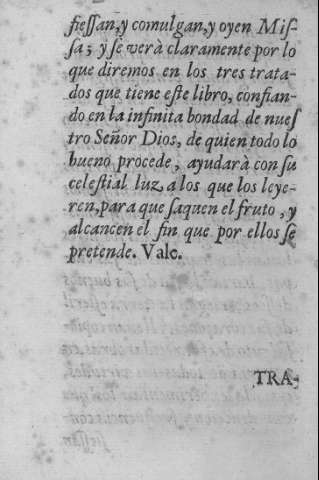 fieſſan, y comulgan, y oyen Miſ-
ſa; y ſe verà claramente por lo
que diremos en los tres trata-
dos que tiene eſte libro, confian-
do en la infinita bondad de nueſ
tro Señor Dios, de quien todo lo
bueno procede, ayudarà con ſu
celeſtial luz, a los que los leye-
ren, para que ſaquen el fruto, y
alcancen el fin que por ellos ſe
pretende. Vale.
TRA-